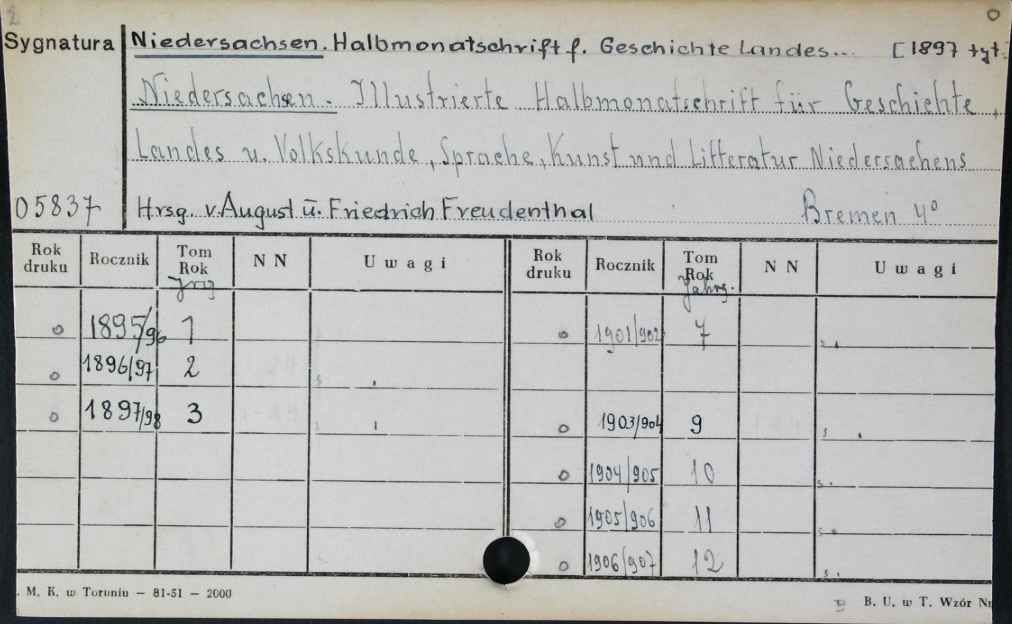 2 0
Sygnatura Niedersachsen. Halbmonatschrift f. Geschichte Landes... [1897 tyt.
Niedersachsen. Illustrierte Halbmonatschrift für Geschichte,
Landes u. Volkskunde, Sprache, Kunst und Litteratur Niedersachens
05837 Hrsg. v. August u. Friedrich Freudenthal Bremen 4°
Rok druku Rocznik Tom Rok NN Uwagi Rok druku Rocznik Tom Rok Jahrg. NN Uwagi
o 1895/96 1 o 1901/902 7
o 1896/97 2
o 1897/98 3 o 1903/904 9
o 1904/905 10
o 1905/906 11
o 1906/907 12
. M. K. w Toruniu — 81-51 — 2000 B. U. w T. Wzór Nr